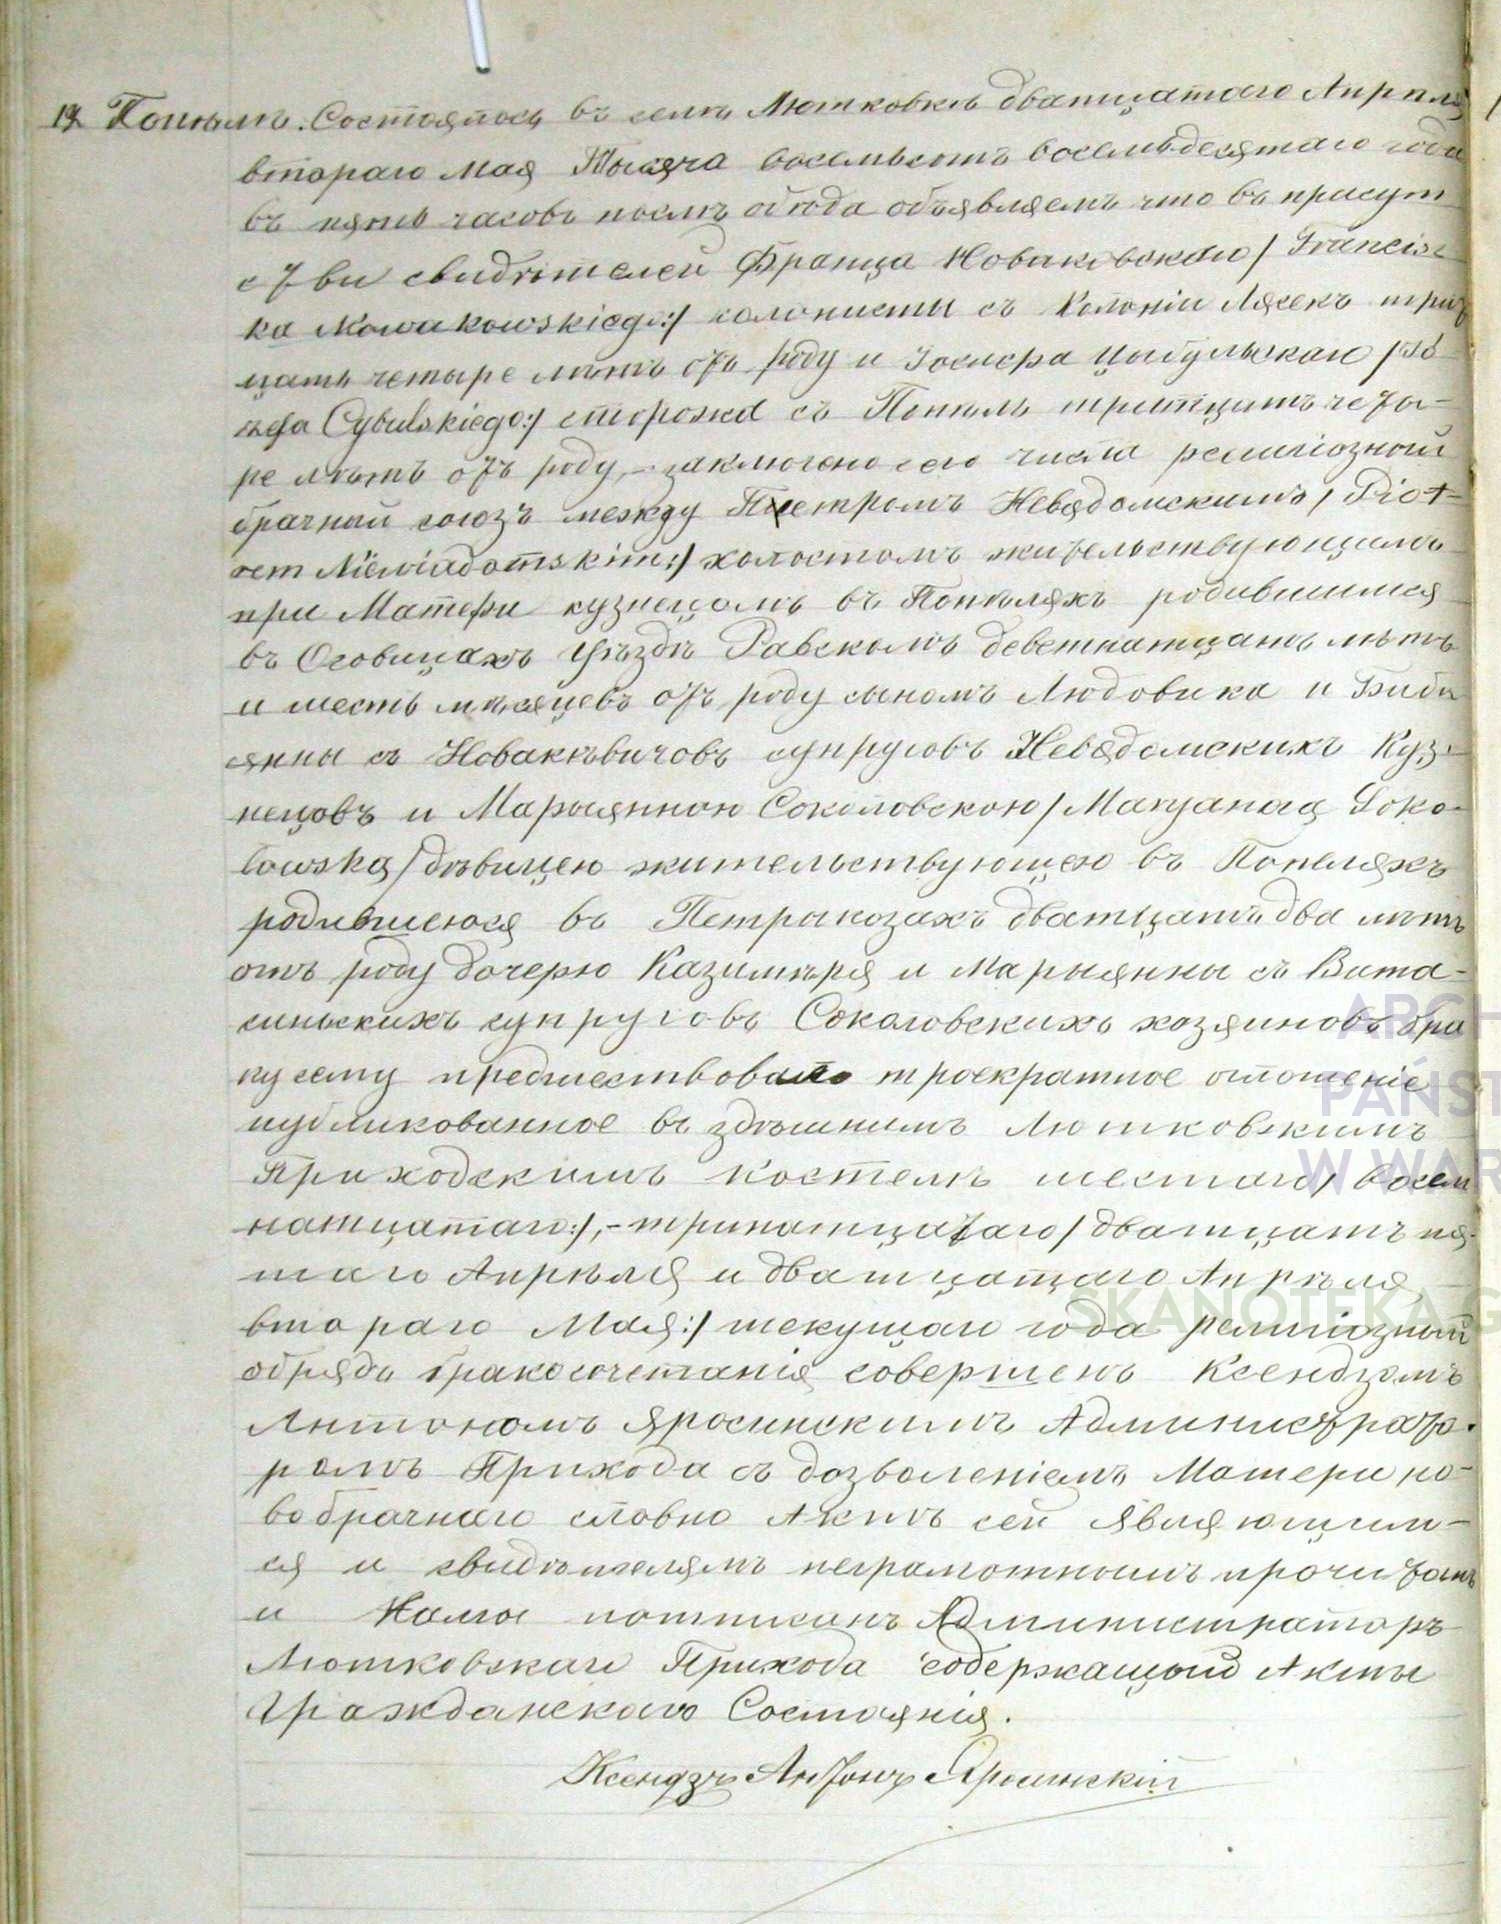 12 Попѣлъ. Состоялось въ селѣ Лютковкѣ дватцатаго Апрѣля
втораго Мая Тысяча восемьсотъ восемьдесятаго года
въ пять часовъ послѣ обѣда объявляемъ что въ присут
ствіи свидѣтелей Франца Новаковскаго / Francisz
ka Nowakowskiego:/ колонисты съ Колоніи Лясекъ трит
цать четыре лѣтъ отъ роду и Іосефа Цыбульскаго / Jó
zefa Cybulskiego:/ сторожа съ Попѣлъ тритцать четы-
ре лѣтъ отъ роду, - заключено сего числа религіозный
брачный союзъ между Петромъ Невядомскимъ / Piot-
rem Niewiadomskim:/ холостомъ жительствующимъ
при Матери кузнецомъ въ Попѣляхъ родившимся
въ Оговицахъ Уѣздѣ Равскомъ деветнатцать лѣтъ
и шесть мѣсяцевъ отъ роду сыномъ Людовика и Биби
янны съ Новакѣвичовъ супруговъ Невядомскихъ Куз-
нецовъ и Марыянною Соколовскою / Maryanną Soko-
łowską / дѣвицею жительствующею въ Попеляхъ
родившеюся въ Петрыкозахъ дватцать два лѣтъ
отъ роду дочерю Казимѣря и Марыянны съ Вита-
синьскихъ супруговъ Соколовскихъ хозяиновъ бра
ку сему предшествовало троекратное оглошеніе
публикованное въ здѣшнимъ Лютковскимъ
Приходскимъ костелѣ шестаго / восем
натцатаго:/, - тринатцатаго / дватцать пя-
таго Апрѣля и дватцатаго Апрѣля
втораго Мая:/ текущаго года религіозный
обрядъ бракосочетанія совершенъ Ксендзомъ
Антономъ Яросинскимъ Администрато-
ромъ Прихода съ дозволеніемъ Матери но-
вобрачнаго словно Актъ сей являющим-
ся и свидѣтелямъ неграмотнымъ прочитанъ
и Нами потписанъ Администраторъ
Лютковскаго Прихода содержащый Акты
Гражданскаго Состоянія.
Ксендзъ Антонъ Яросинскій
ARCH
PAŃST
W WAR
SKANOTEKA.G